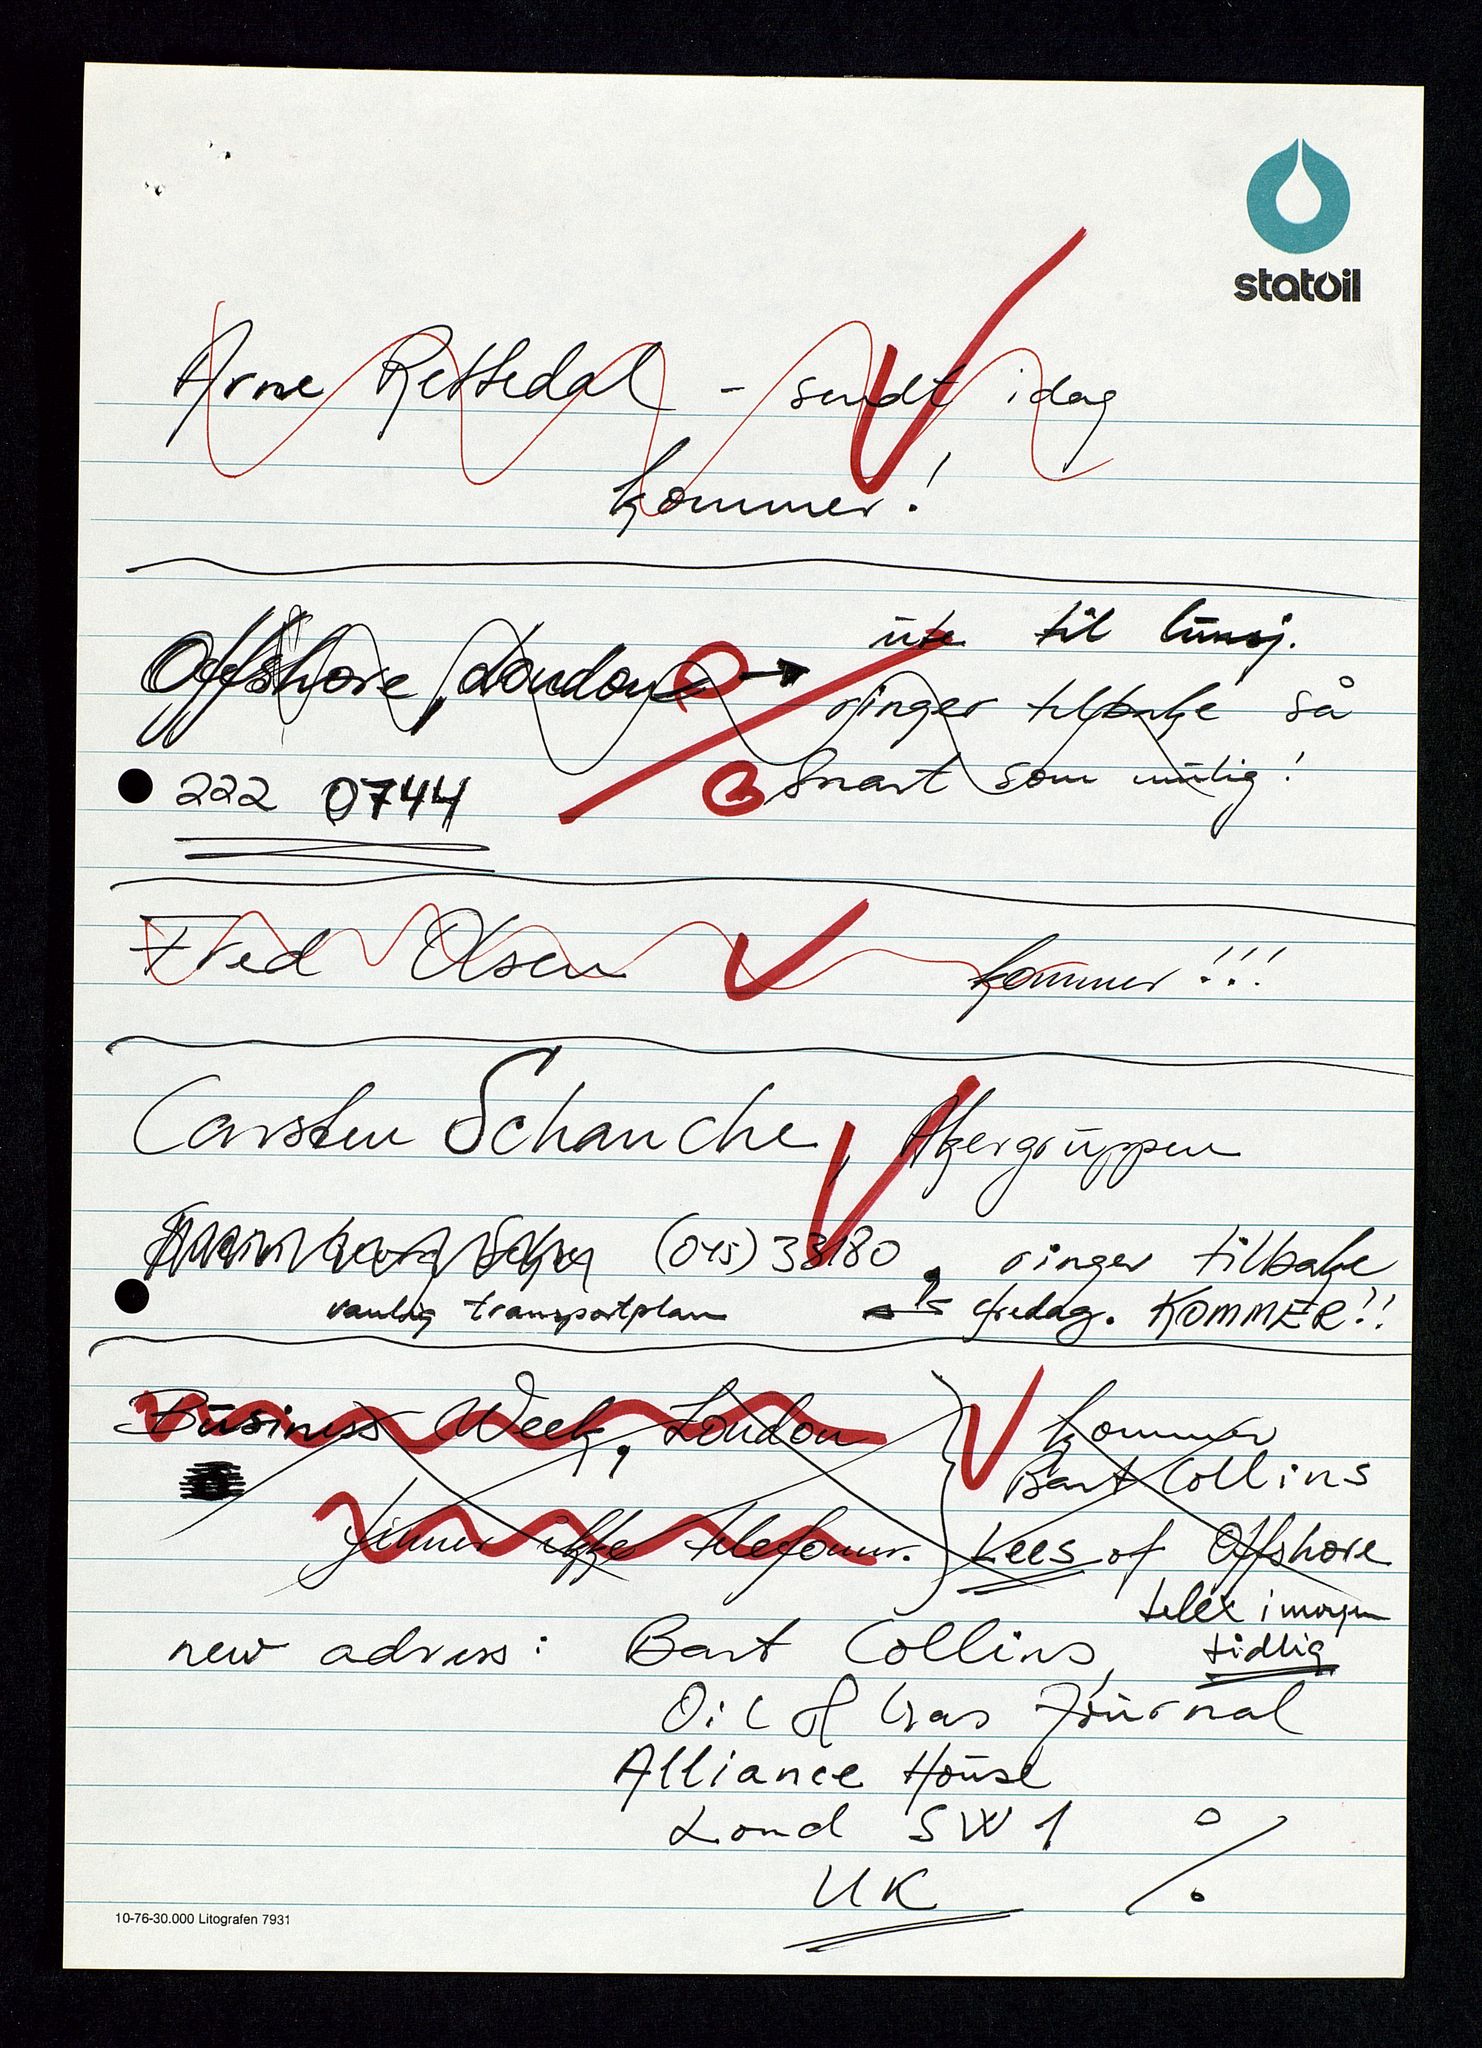 statoil
Arne Rettedal - sendt idag
kommer!
Offshore, London → ute til lunsj.
ringer tilbake så
222 0744 snart som mulig!
Fred Olsen kommer!!!
Carsten Schanche, Akergruppen
(045) 33180, ringer tilbake
vanlig transportplan fredag. KOMMER!!
Business Week, London kommer
Bart Collins
finner ikke telefonnr. Kees of Offshore
telex imorgen
new adress: Bart Collins, tidlig
Oil & Gas Journal
Alliance House
Lond SW1
UK
10-76-30.000 Litografen 7931